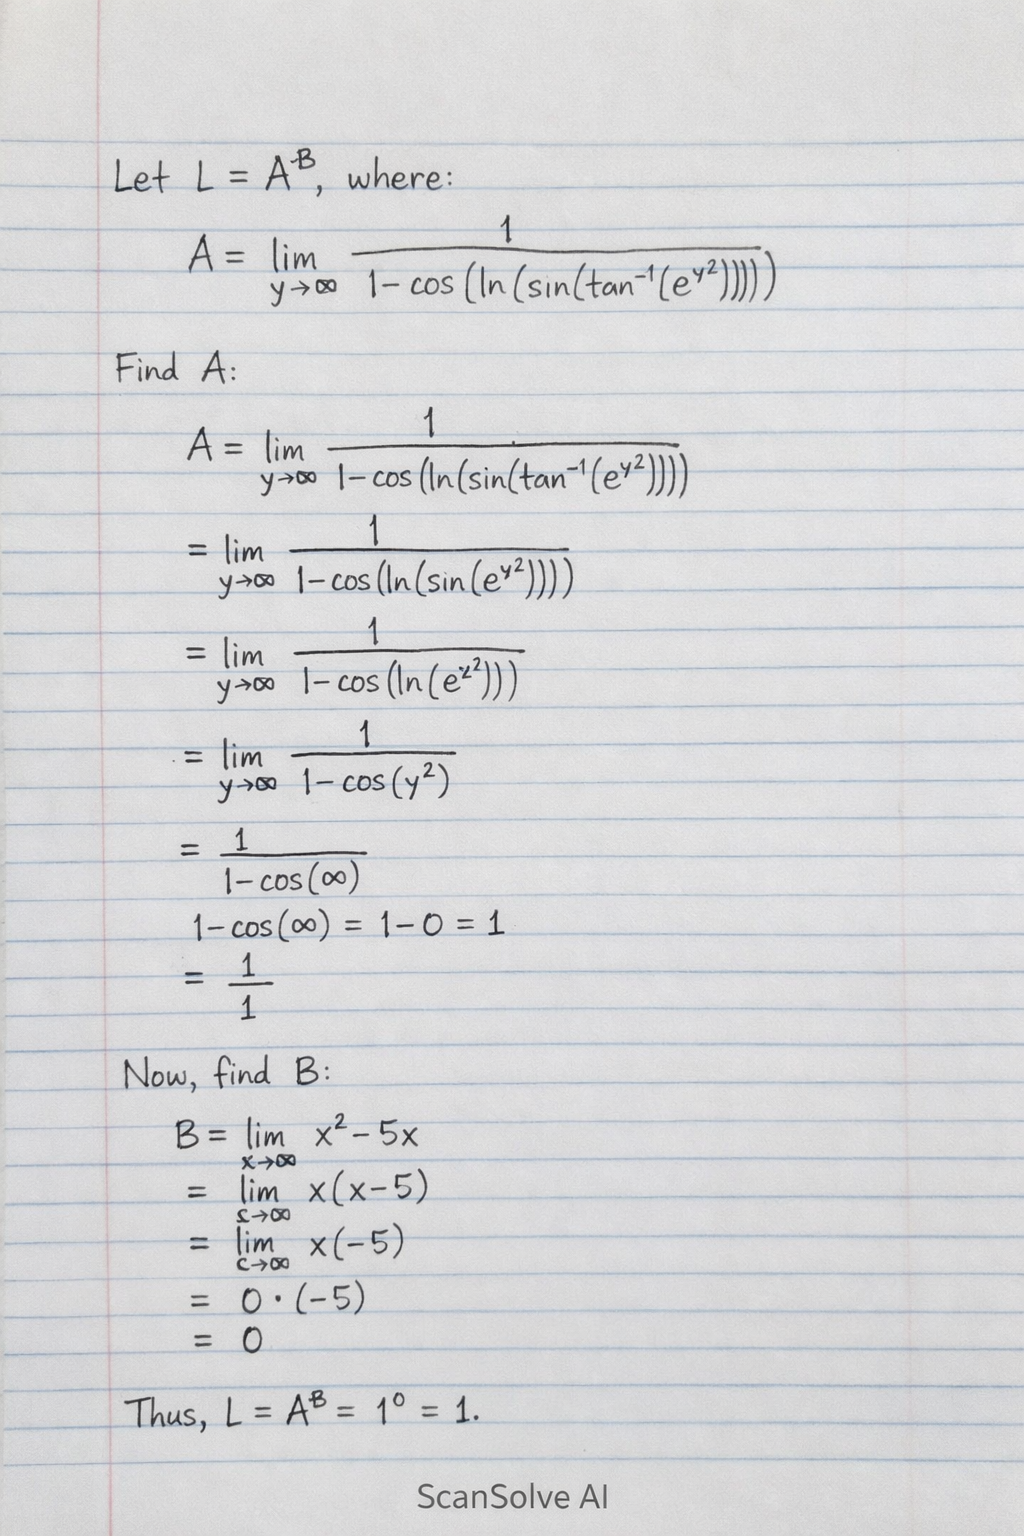 Let L = A^B, where:
A = lim y→∞ 1 / (1 - cos(ln(sin(tan⁻¹(e^y²)))))
Find A:
A = lim y→∞ 1 / (1 - cos(ln(sin(tan⁻¹(e^y²))))
= lim y→∞ 1 / (1 - cos(ln(sin(e^y²))))
= lim y→∞ 1 / (1 - cos(ln(e^z²)))
= lim y→∞ 1 / (1 - cos(y²))
= 1 / (1 - cos(∞))
1 - cos(∞) = 1 - 0 = 1
= 1 / 1
Now, find B:
B = lim x→∞ x² - 5x
= lim s→∞ x(x - 5)
= lim c→∞ x(-5)
= 0 · (-5)
= 0
Thus, L = A^B = 1⁰ = 1.
ScanSolve AI